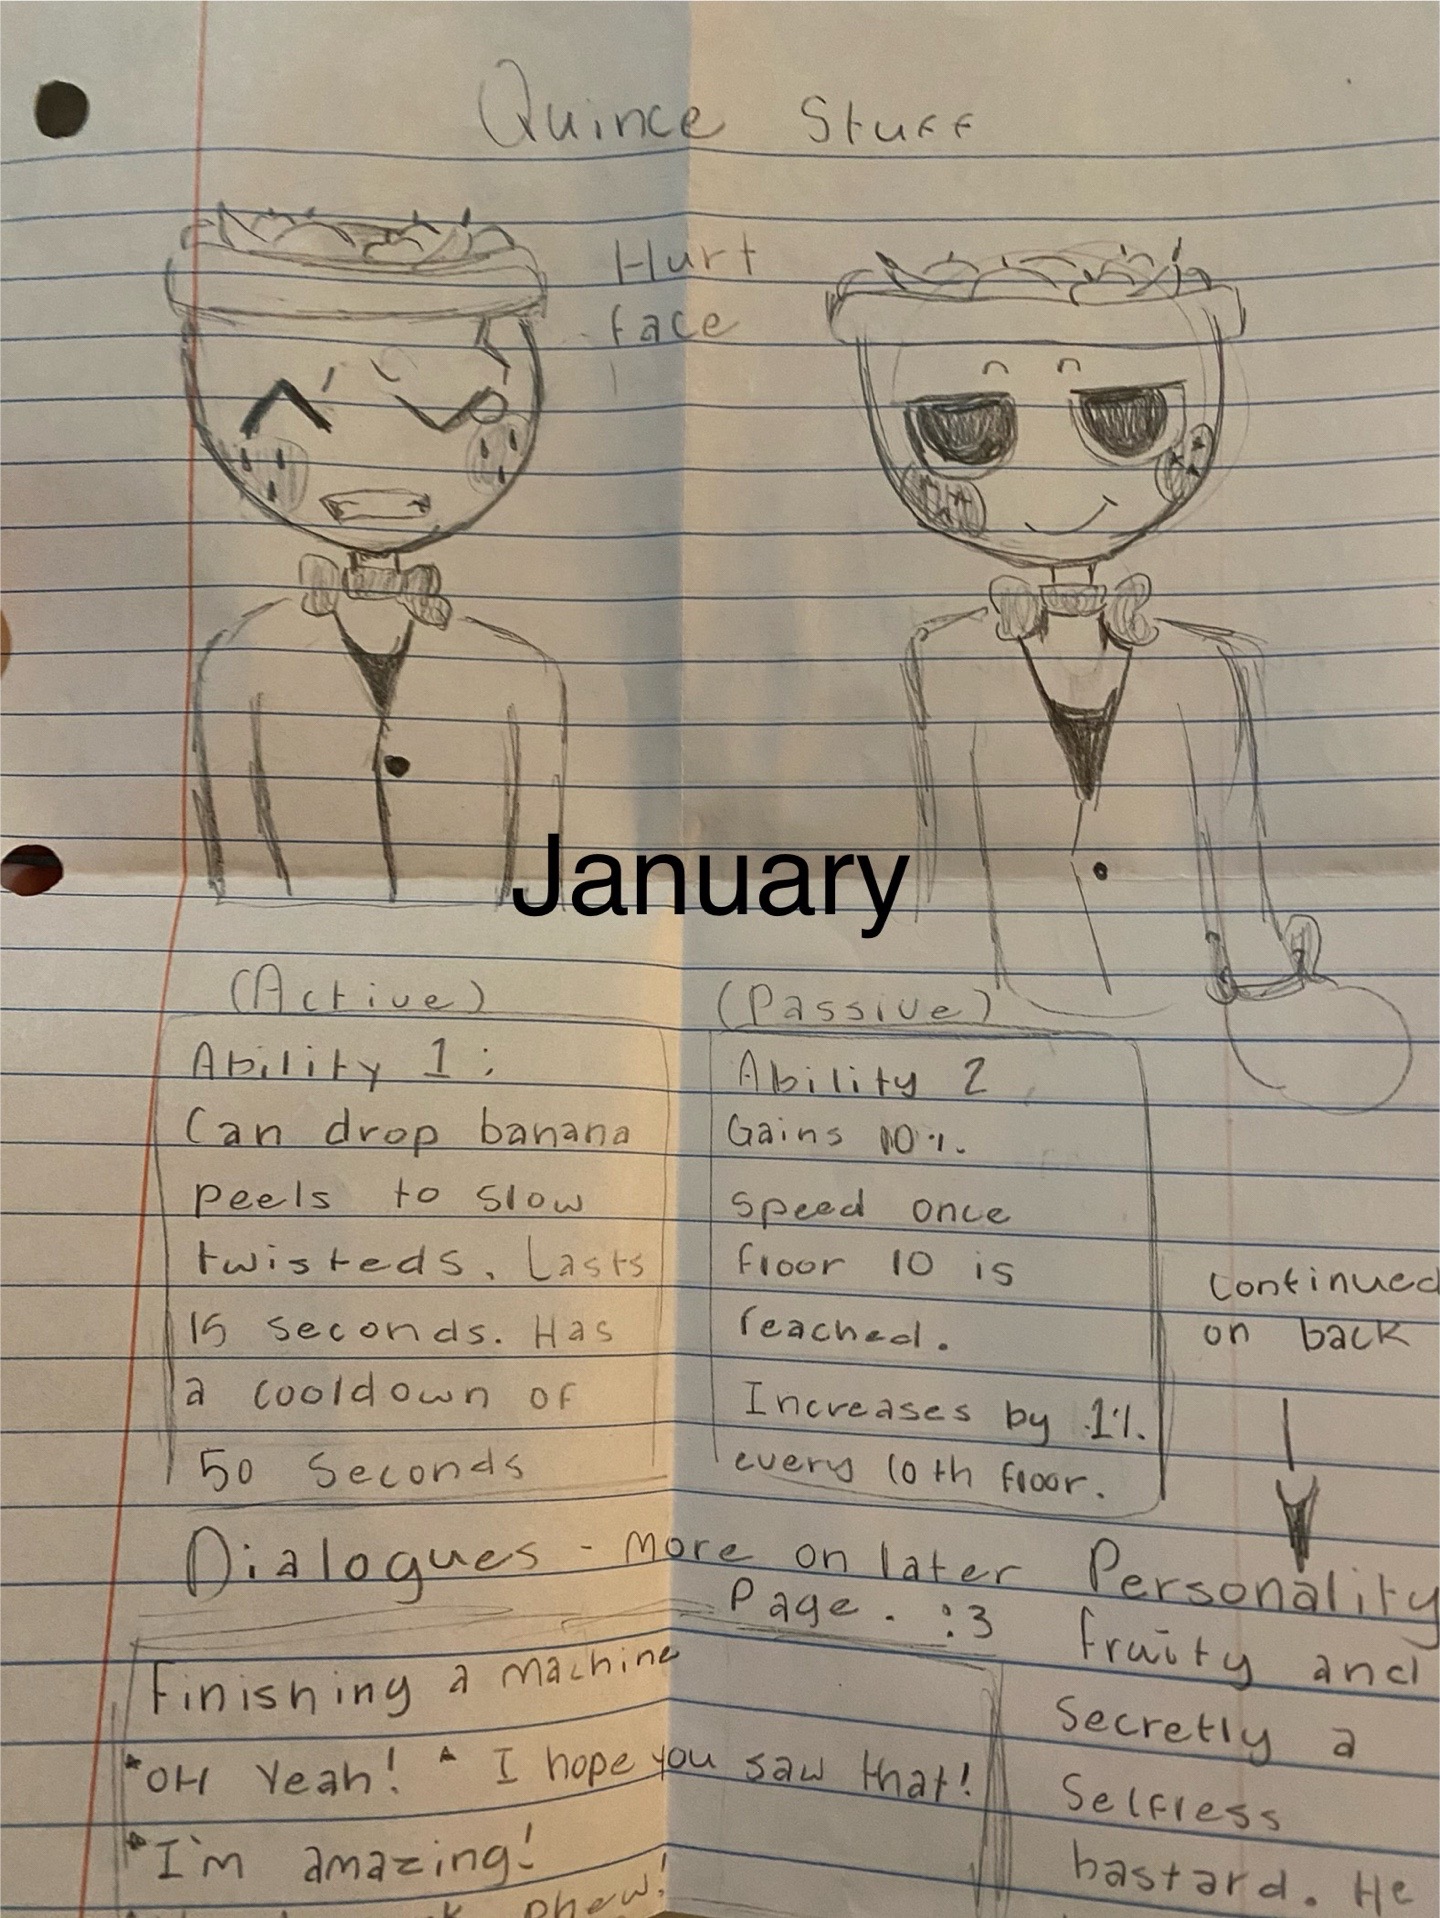 Quince Stuff
Hurt
face
January
(Active)
Ability 1:
Can drop banana
peels to slow
twisteds. Lasts
15 seconds. Has
a cooldown of
50 Seconds
(Passive)
Ability 2
Gains 10%
speed once
floor 10 is
reached.
Increases by 1%
every 10th floor.
Continued
on back
Dialogues - more on later
Page. :3
Finishing a machine
*OH Yeah! * I hope you saw that!
*I'm amazing!
phew!
Personality
fruity and
Secretly a
Selfless
bastard. He